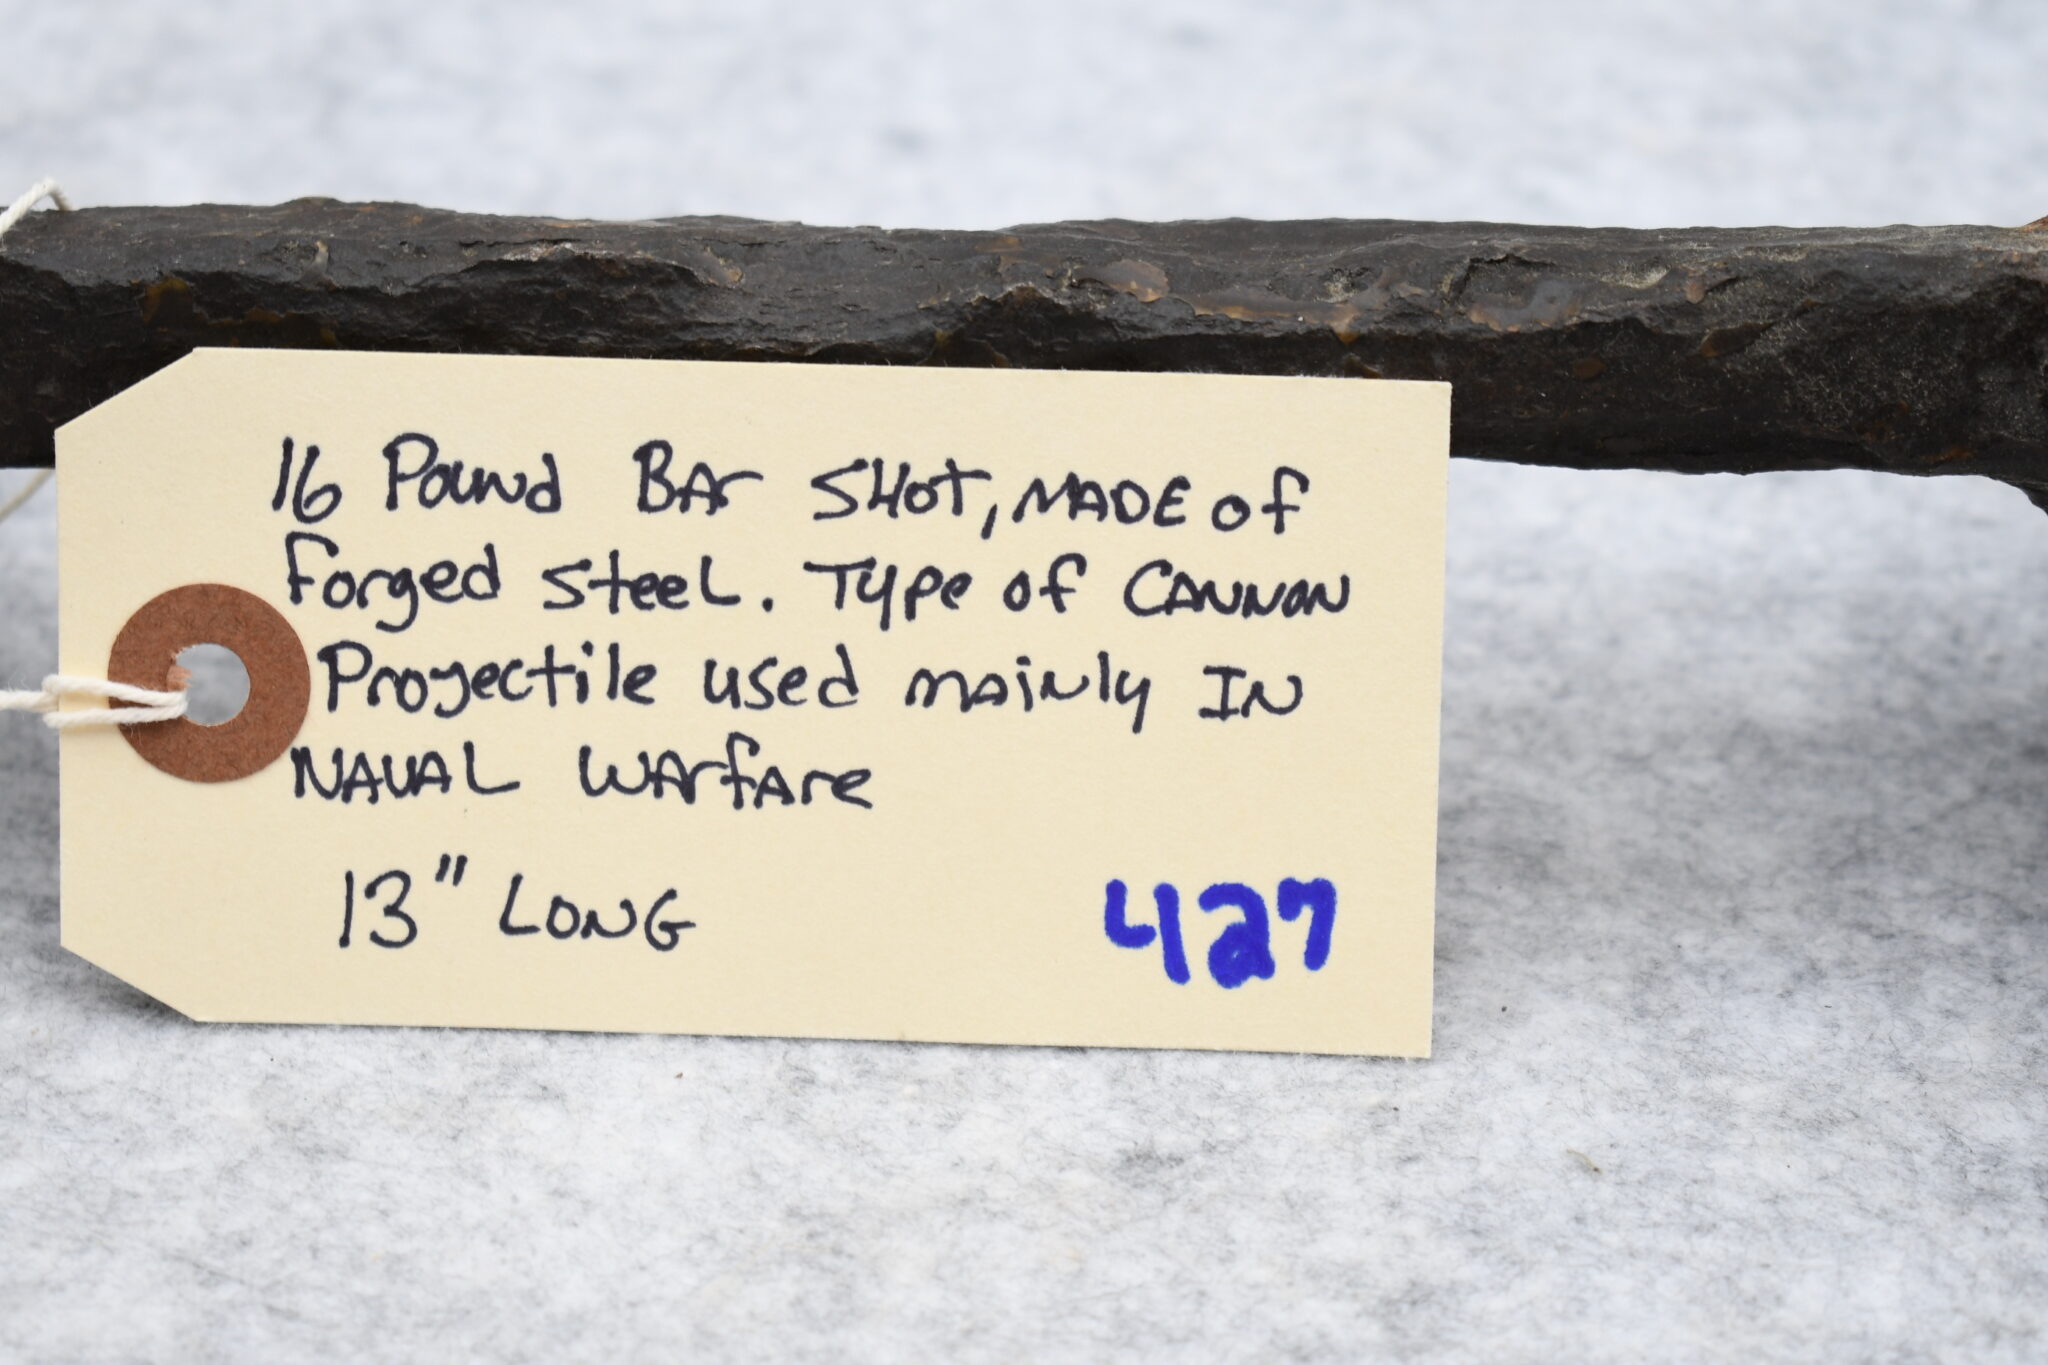 16 Pound BAr SHOT, MADE of
forged steeL. Type of CANNON
Proyectile used mainly IN
NAVAL WArfAre
13" LONG 427